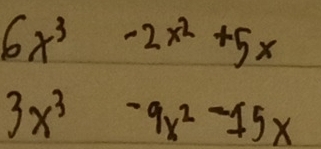 6x³ -2x² +5x
3x³ -9x² -15x